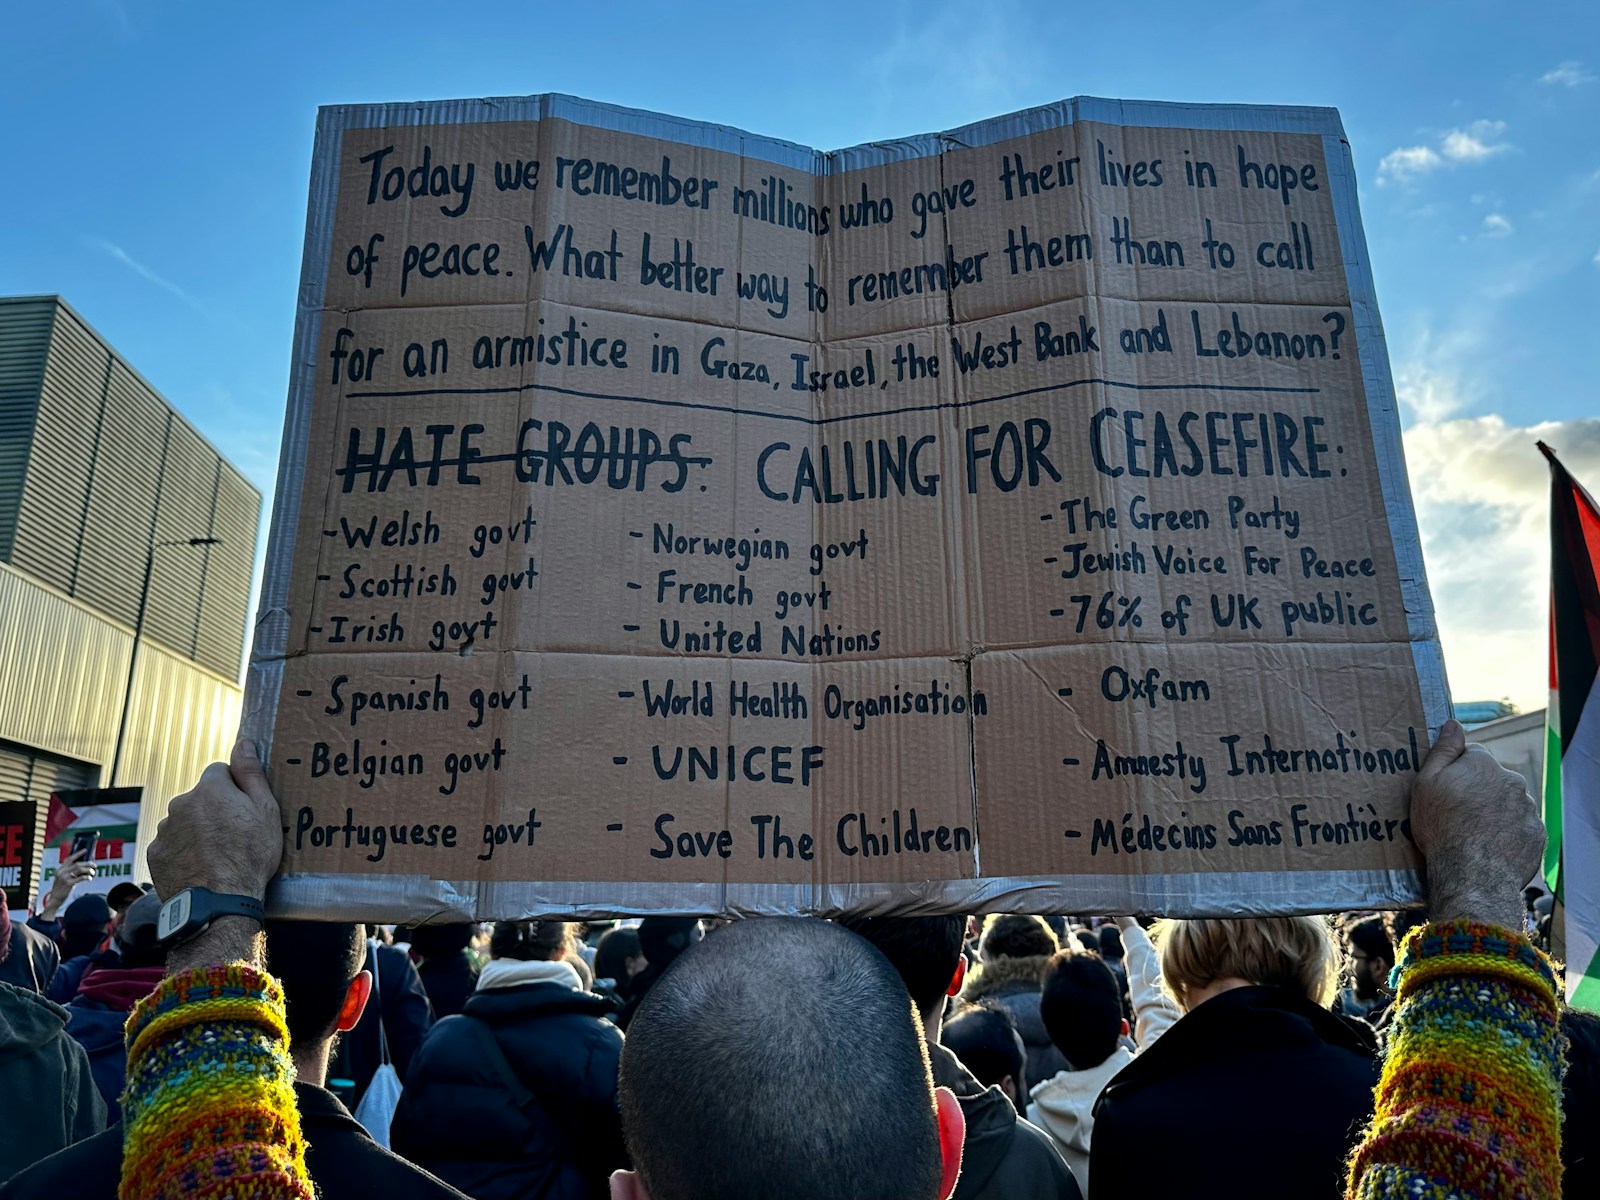 Today we remember millions who gave their lives in hope
of peace. What better way to remember them than to call
for an armistice in Gaza, Israel, the West Bank and Lebanon?
HATE GROUPS: CALLING FOR CEASEFIRE:
- Welsh govt
- Scottish govt
- Irish govt
- Spanish govt
- Belgian govt
- Portuguese govt
- Norwegian govt
- French govt
- United Nations
- World Health Organisation
- UNICEF
- Save The Children
- The Green Party
- Jewish Voice For Peace
- 76% of UK public
- Oxfam
- Amnesty International
- Médecins Sans Frontièr